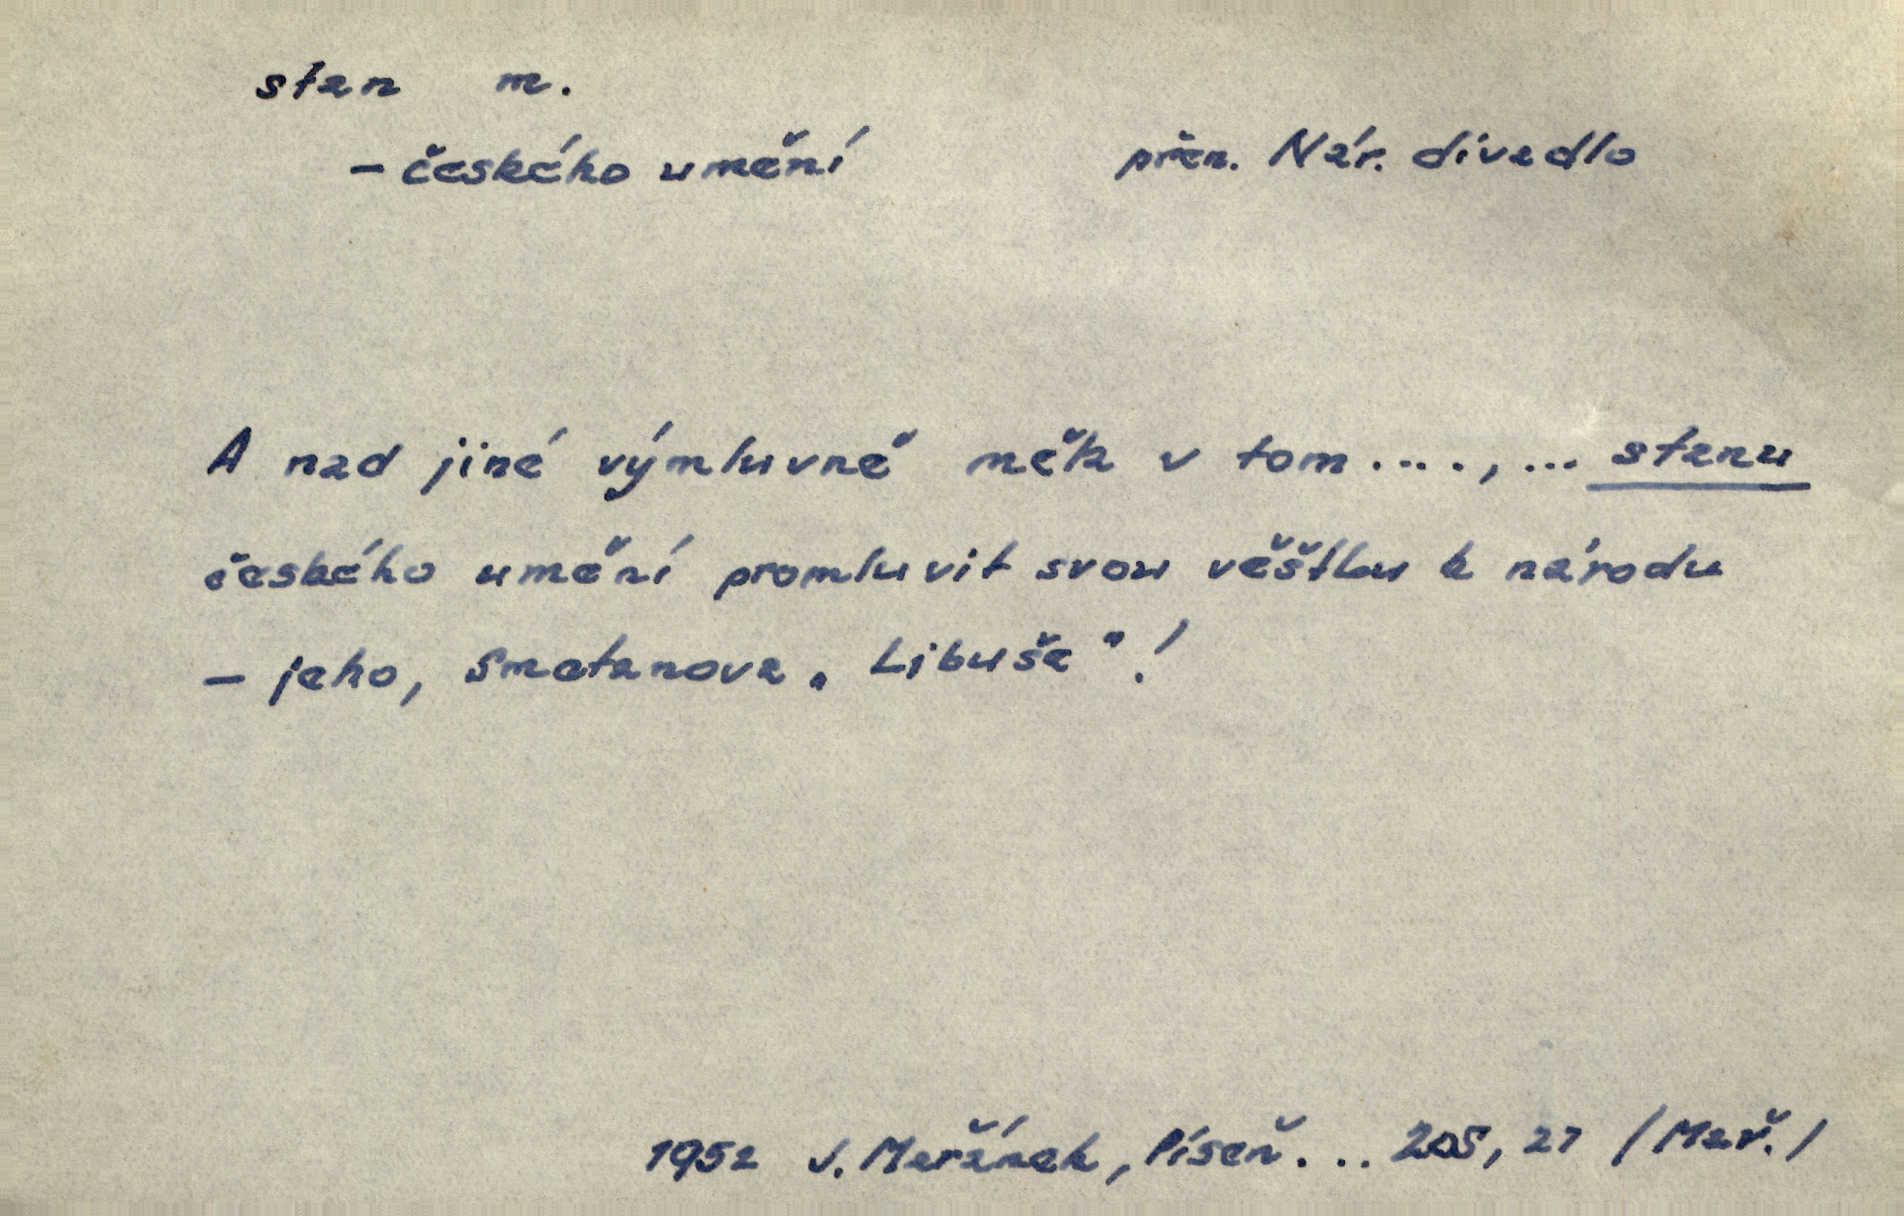 stan m.
– českého umění přen. Nár. divadlo
A nad jiné výmluvně měla v tom ...., ... stanu
českého umění promluvit svou věštbu k národu
– jeho, Smetanova „Libuše"!
1952 J. Mařánek, Píseň... 205, 27 /Mař./